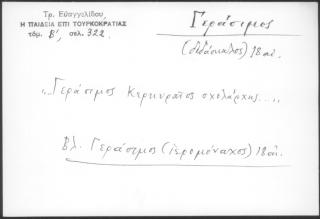 Τρ. Εὐαγγελίδου,
Η ΠΑΙΔΕΙΑ ΕΠΙ ΤΟΥΡΚΟΚΡΑΤΙΑΣ
τόμ. Β', σελ. 322.
Γεράσιμος
(διδάσκαλος) 18 αἰ.
„Γεράσιμος Κερκυραῖος σχολάρχης...„
Βλ. Γεράσιμος (ἱερομόναχος) 18 αἰ.